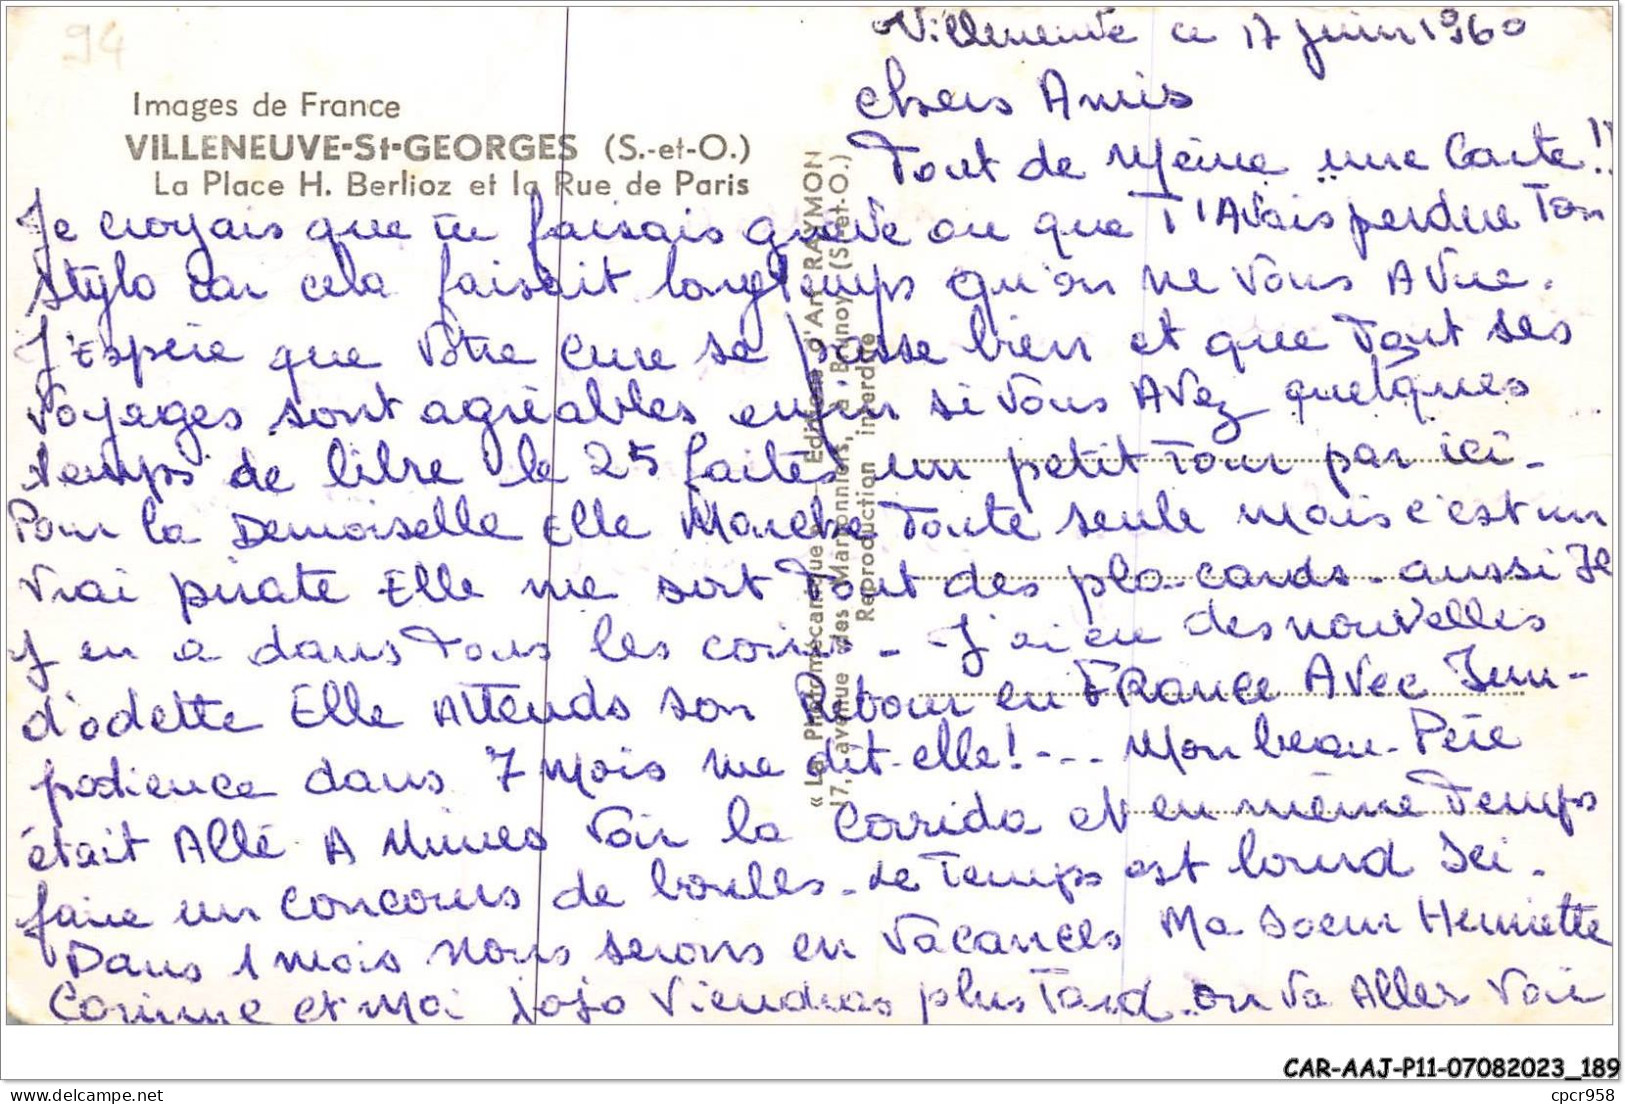 94
Images de France
VILLENEUVE-St-GEORGES (S.-et-O.)
La Place H. Berlioz et la Rue de Paris
« La Photomécanique » - Editions d'Art RAYMON
17, avenue des Marronniers, à Brunoy (S.-et-O.)
Reproduction interdite
Villeneuve ce 17 juin 1960
chers Amis
Tout de Même une Carte!!
Je croyais que tu faisais grève ou que T'Avais perdue Ton
stylo car cela faisait longtemps qu'on ne vous A vue.
J'Espère que Votre cure se passe bien et que Tout ses
voyages sont agréables enfin si vous Avez quelques
temps de libre le 25 faites un petit Tour par ici-
Pour la Demoiselle Elle Marche Toute seule mais c'est un
vrai pirate Elle me sort Tout des pla-cards - aussi Il
y en a dans Tous les coins - J'ai eu des nouvelles
d'odette Elle Attends son Retour en FRance Avec Im-
patience dans 7 Mois me dit-elle!--- Mon beau-Père
était Allé A Nimes Voir la Corrida et en même Temps
faire un concours de boules - Le Temps est lourd Ici.
Dans 1 mois nous serons en Vacances Ma Soeur Henriette
Corinne et Moi jojo Viendras plus Tard on va Aller Voir
CAR-AAJ-P11-07082023_189
cpcr958